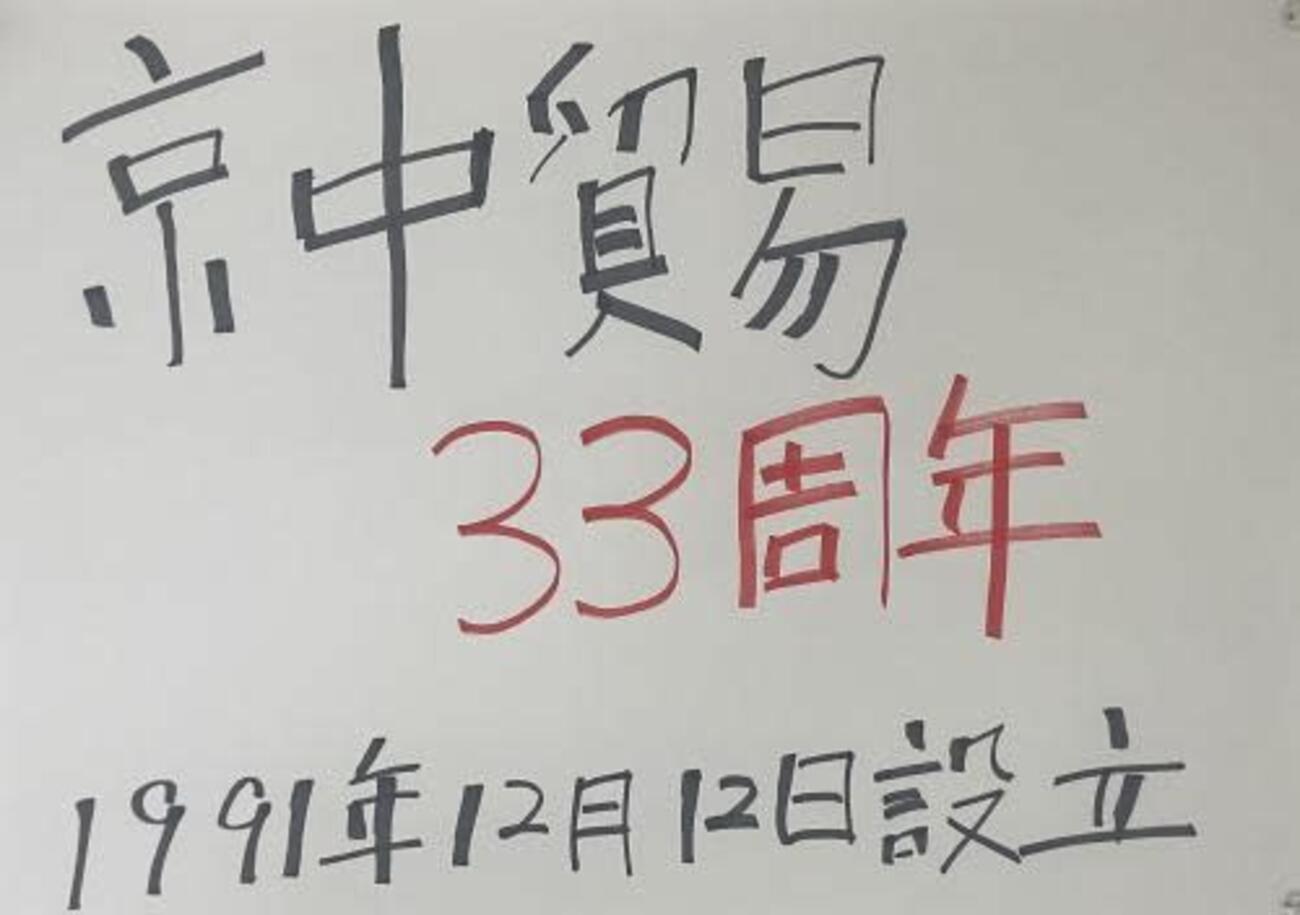 京中貿易
33周年
1991年12月12日設立